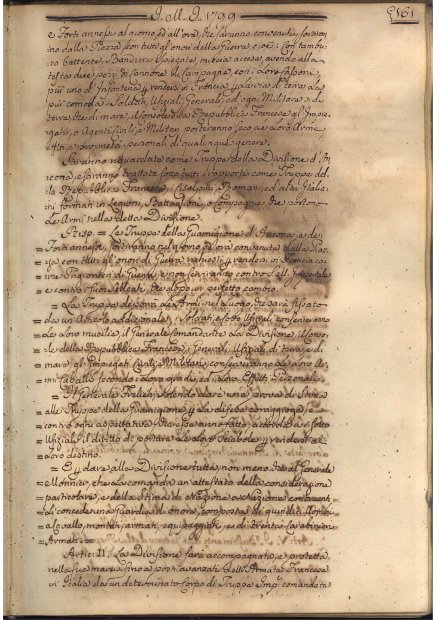 J. M. J. 1799
e Forti annessi al giorno, ed all'ora, che saranno convenute, sortiranno
dalla Piazza, con tutti gl'onori della Guerra, cioè: con tamburo
battente, Bandiera spiegata, miccia accesa, avendo alla
testa due pezzi di Cannone di Campagna, con i loro Cassoni,
più uno d'Infanteria, e rendersi in Francia per la via di terra la
più comoda. I Soldati, Ufiziali, Generali, ed ogni Militare di
terra, che di mare, Console della Repubblica Francese, gl'Impiegati,
o Agenti Civili, e Militari porteranno seco le loro Armi
e proprietà personali di qualunque genere.
Saranno riguardate come Truppe della Divisione d'Ancona,
e saranno trattate sotto tutti i rapporti come Truppe della
Repubblica Francese, i Cisalpini, Romani, ed altri Italiani
formati in Legioni, Battaglioni, o Compagnie, che portono
le Armi nella detta Divisione.
Risp. = Le Truppe della Guarnigione d'Ancona, e de'
= Forti annessi, sortiranno nel giorno, ed ora convenuta dalla Piazza
= con tutti gl'onori di Guerra richiesti, e rendersi in Francia come
= Prigionieri di Guerra, e non serviranno contro
= e contro i suoi Alleati, che doppo un perfetto cambio.
= La Truppa deporà le Armi nel luogo, che sarà fissato
= da un Articolo addizionale; i Soldati, e sotto Ufiziali conserveranno
= le loro mucilie, il Generale Comandante la Divisione, il Console
= della Repubblica Francese, i Generali, Ufiziali di terra, e di
= mare, gl'Impiegati Civili, e Militari, conserveranno le loro Armi,
= Cavallo secondo i loro gradi, ed i loro Effetti Personali.
= Il Generale Frelich, volendo dare una prova di Stima
= alle Truppe della Guarnigione per la difesa coraggiosa, e
= contro ogni aspettativa, che esse anno fatto, accorda a' sotto
= Ufiziali il diritto di portare le loro Sciabole per rendersi al
= loro destino.
= E per dare alla Divisione tutta, non meno che al Generale
= Monnier, che la comanda un attestato della considerazione
= particolare, e della Stima di Nazione a Nazione combattente
= Li concede una Guardia di onore, composta di quindici Uomini
= a Cavallo, montati, armati, equipaggiati, e di trenta Carabinieri
= Armati.
Artic: II. La Divisione sarà accompagnata, e protetta
nella sua marcia fino a' posti avanzati dell'Armata Francese
in Italia da un determinato Corpo di Truppa Imp: comandata